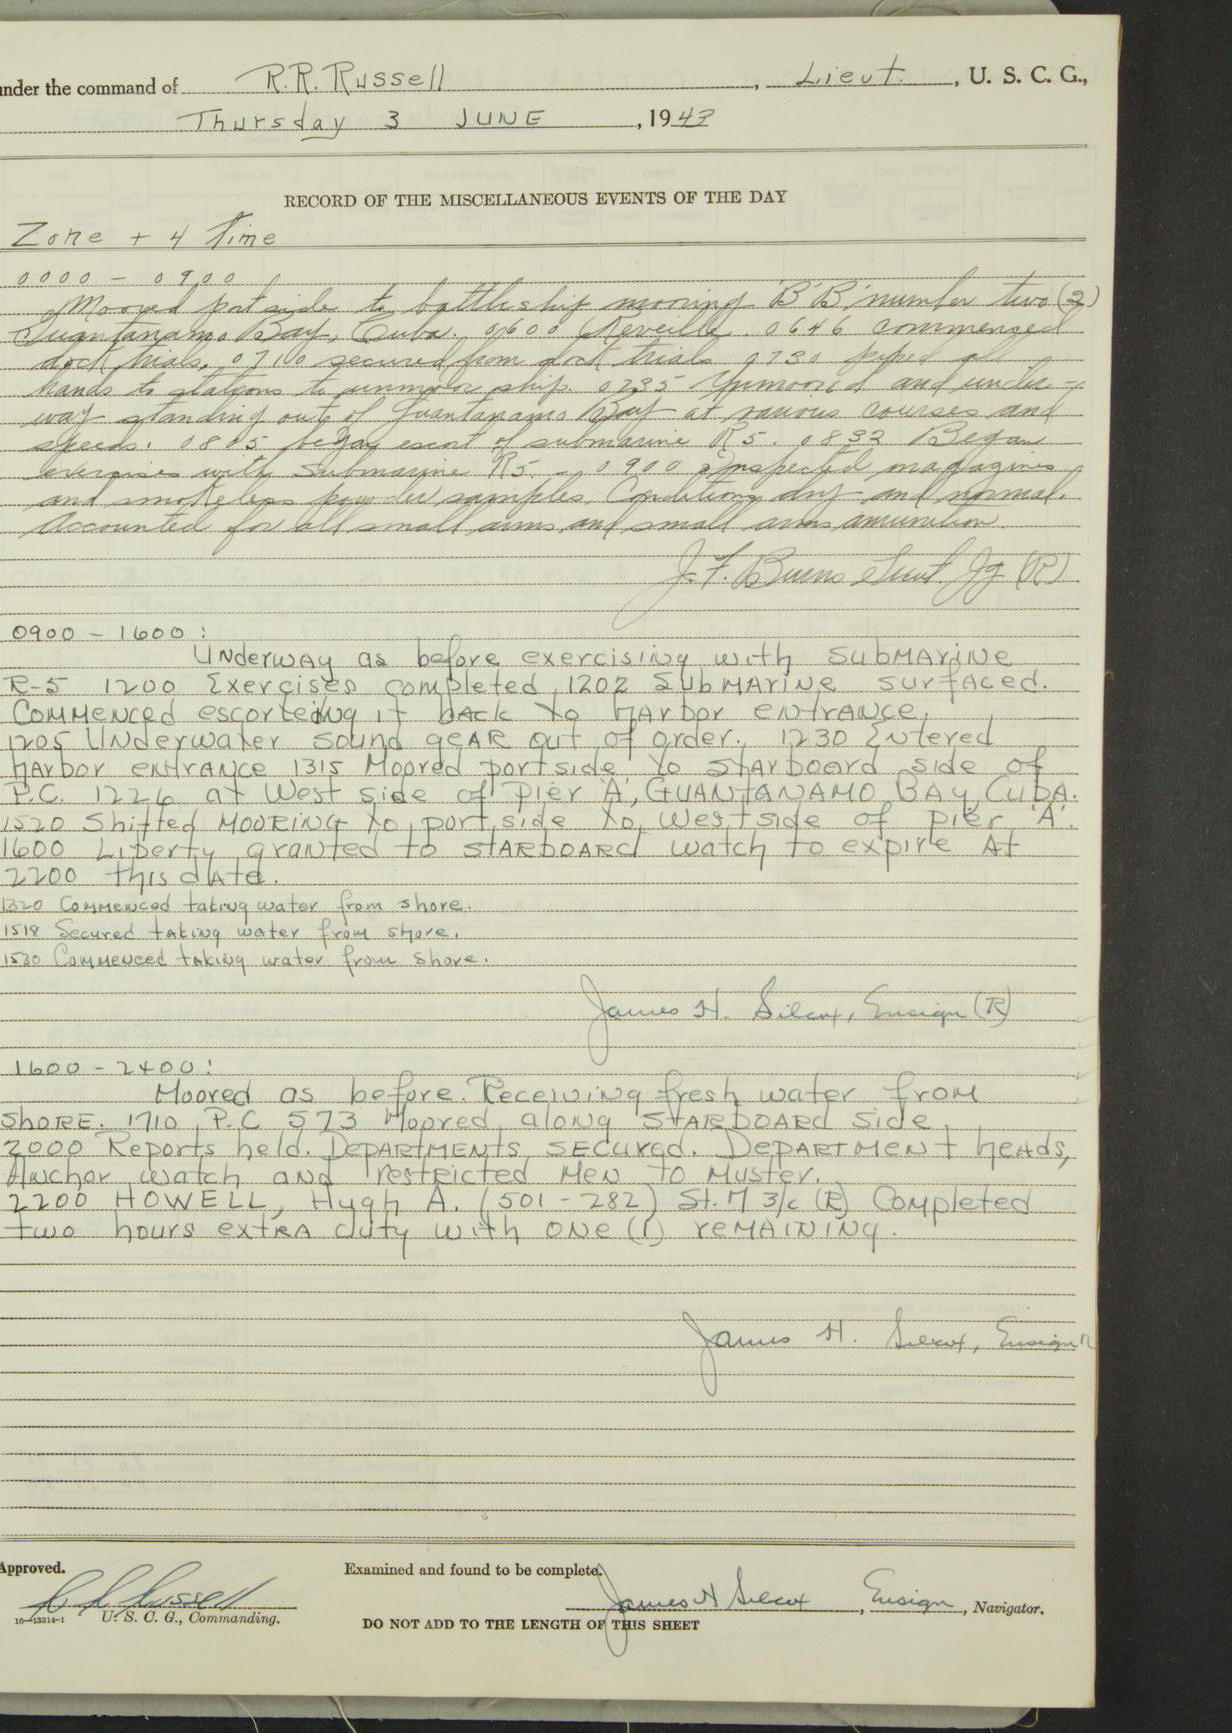 under the command of R.R. Russell, Lieut., U. S. C. G.,
Thursday 3 JUNE, 1943
RECORD OF THE MISCELLANEOUS EVENTS OF THE DAY
Zone + 4 Time
0000 - 0900
Moored portside to battleship mooring 'B' 'B' number two (2)
Guantanamo Bay, Cuba. 0600 Reveille. 0646 commensed
dock trials. 0710 secured from dock trials 0730 piped all
hands to stations to unmoor ship. 0735 Unmoored and under-
way standing out of Guantanamo Bay at various courses and
speeds. 0805 began escort of submarine R5. 0832 Began
exercises with submarine R5. 0900 Inspected magazines
and smokeless powder samples. Conditions dry and normal.
Accounted for all small arms and small arms amunition.
J. F. Burns Lieut. Jg (R)
0900 - 1600:
Underway as before exercising with submarine
R-5 1200 Exercises completed 1202 Submarine surfaced.
Commenced escorteing it back to harbor entrance,
1205 Underwater sound gear out of order. 1230 Entered
harbor entrance 1315 Moored portside to starboard side of
P.C. 1226 at West side of pier 'A', GUANTANAMO BAY, CUBA.
1520 Shifted mooring to port side to west side of pier 'A'.
1600 Liberty granted to starboard watch to expire at
2200 this date.
1320 Commenced taking water from shore.
1518 Secured taking water from shore.
1530 Commenced taking water from shore.
James H. Silcox, Ensign (R)
1600 - 2400:
Moored as before. Receiving fresh water from
shore. 1710 P.C 573 Moored along starboard side
2000 Reports held. Departments secured. Department heads,
Anchor watch and restricted men to muster.
2200 HOWELL, Hugh A. (501-282) St. M 3/c (R) Completed
two hours extra duty with one (1) remaining.
James H. Silcox, Ensign R
Approved.
Examined and found to be complete.
R R Russell
James H Silcox, Ensign, Navigator.
16-13314-1 U. S. C. G., Commanding.
DO NOT ADD TO THE LENGTH OF THIS SHEET